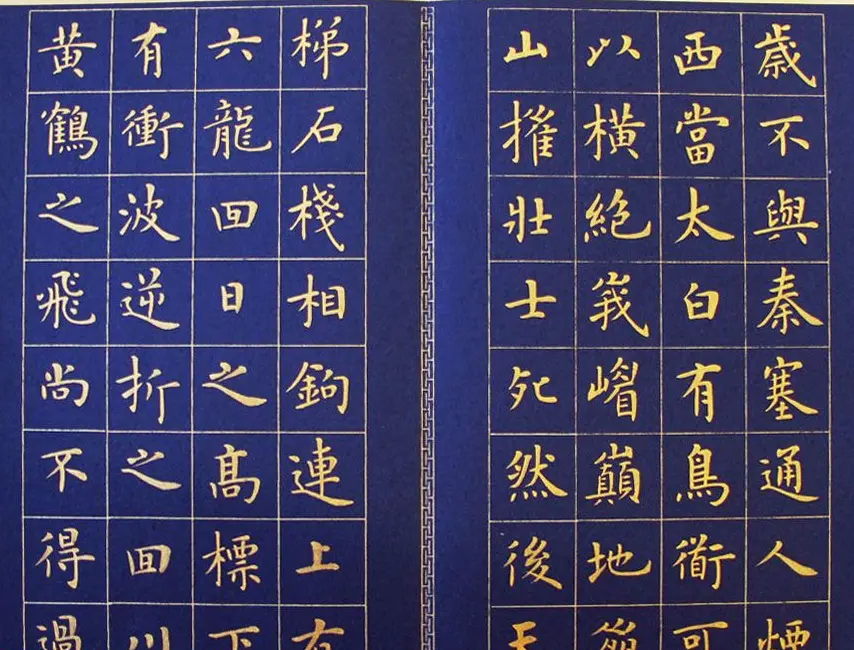 歲不與秦塞通人煙
西當太白有鳥衜可
以橫絕峩嵋巔地崩
山摧壯士死然後天
梯石棧相鉤連上有
六龍囬日之髙標下
有衝波逆折之囬川
黃鶴之飛尚不得過